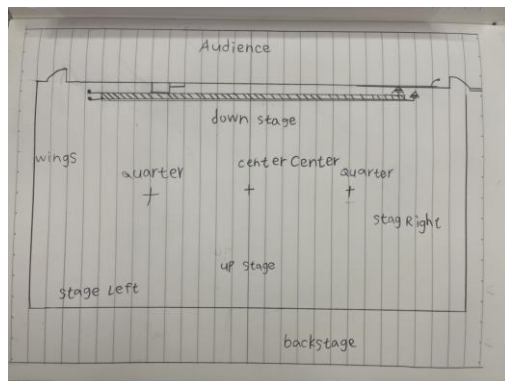 Audience
down stage
wings
quarter
center Center
quarter
stag Right
up stage
stage Left
backstage